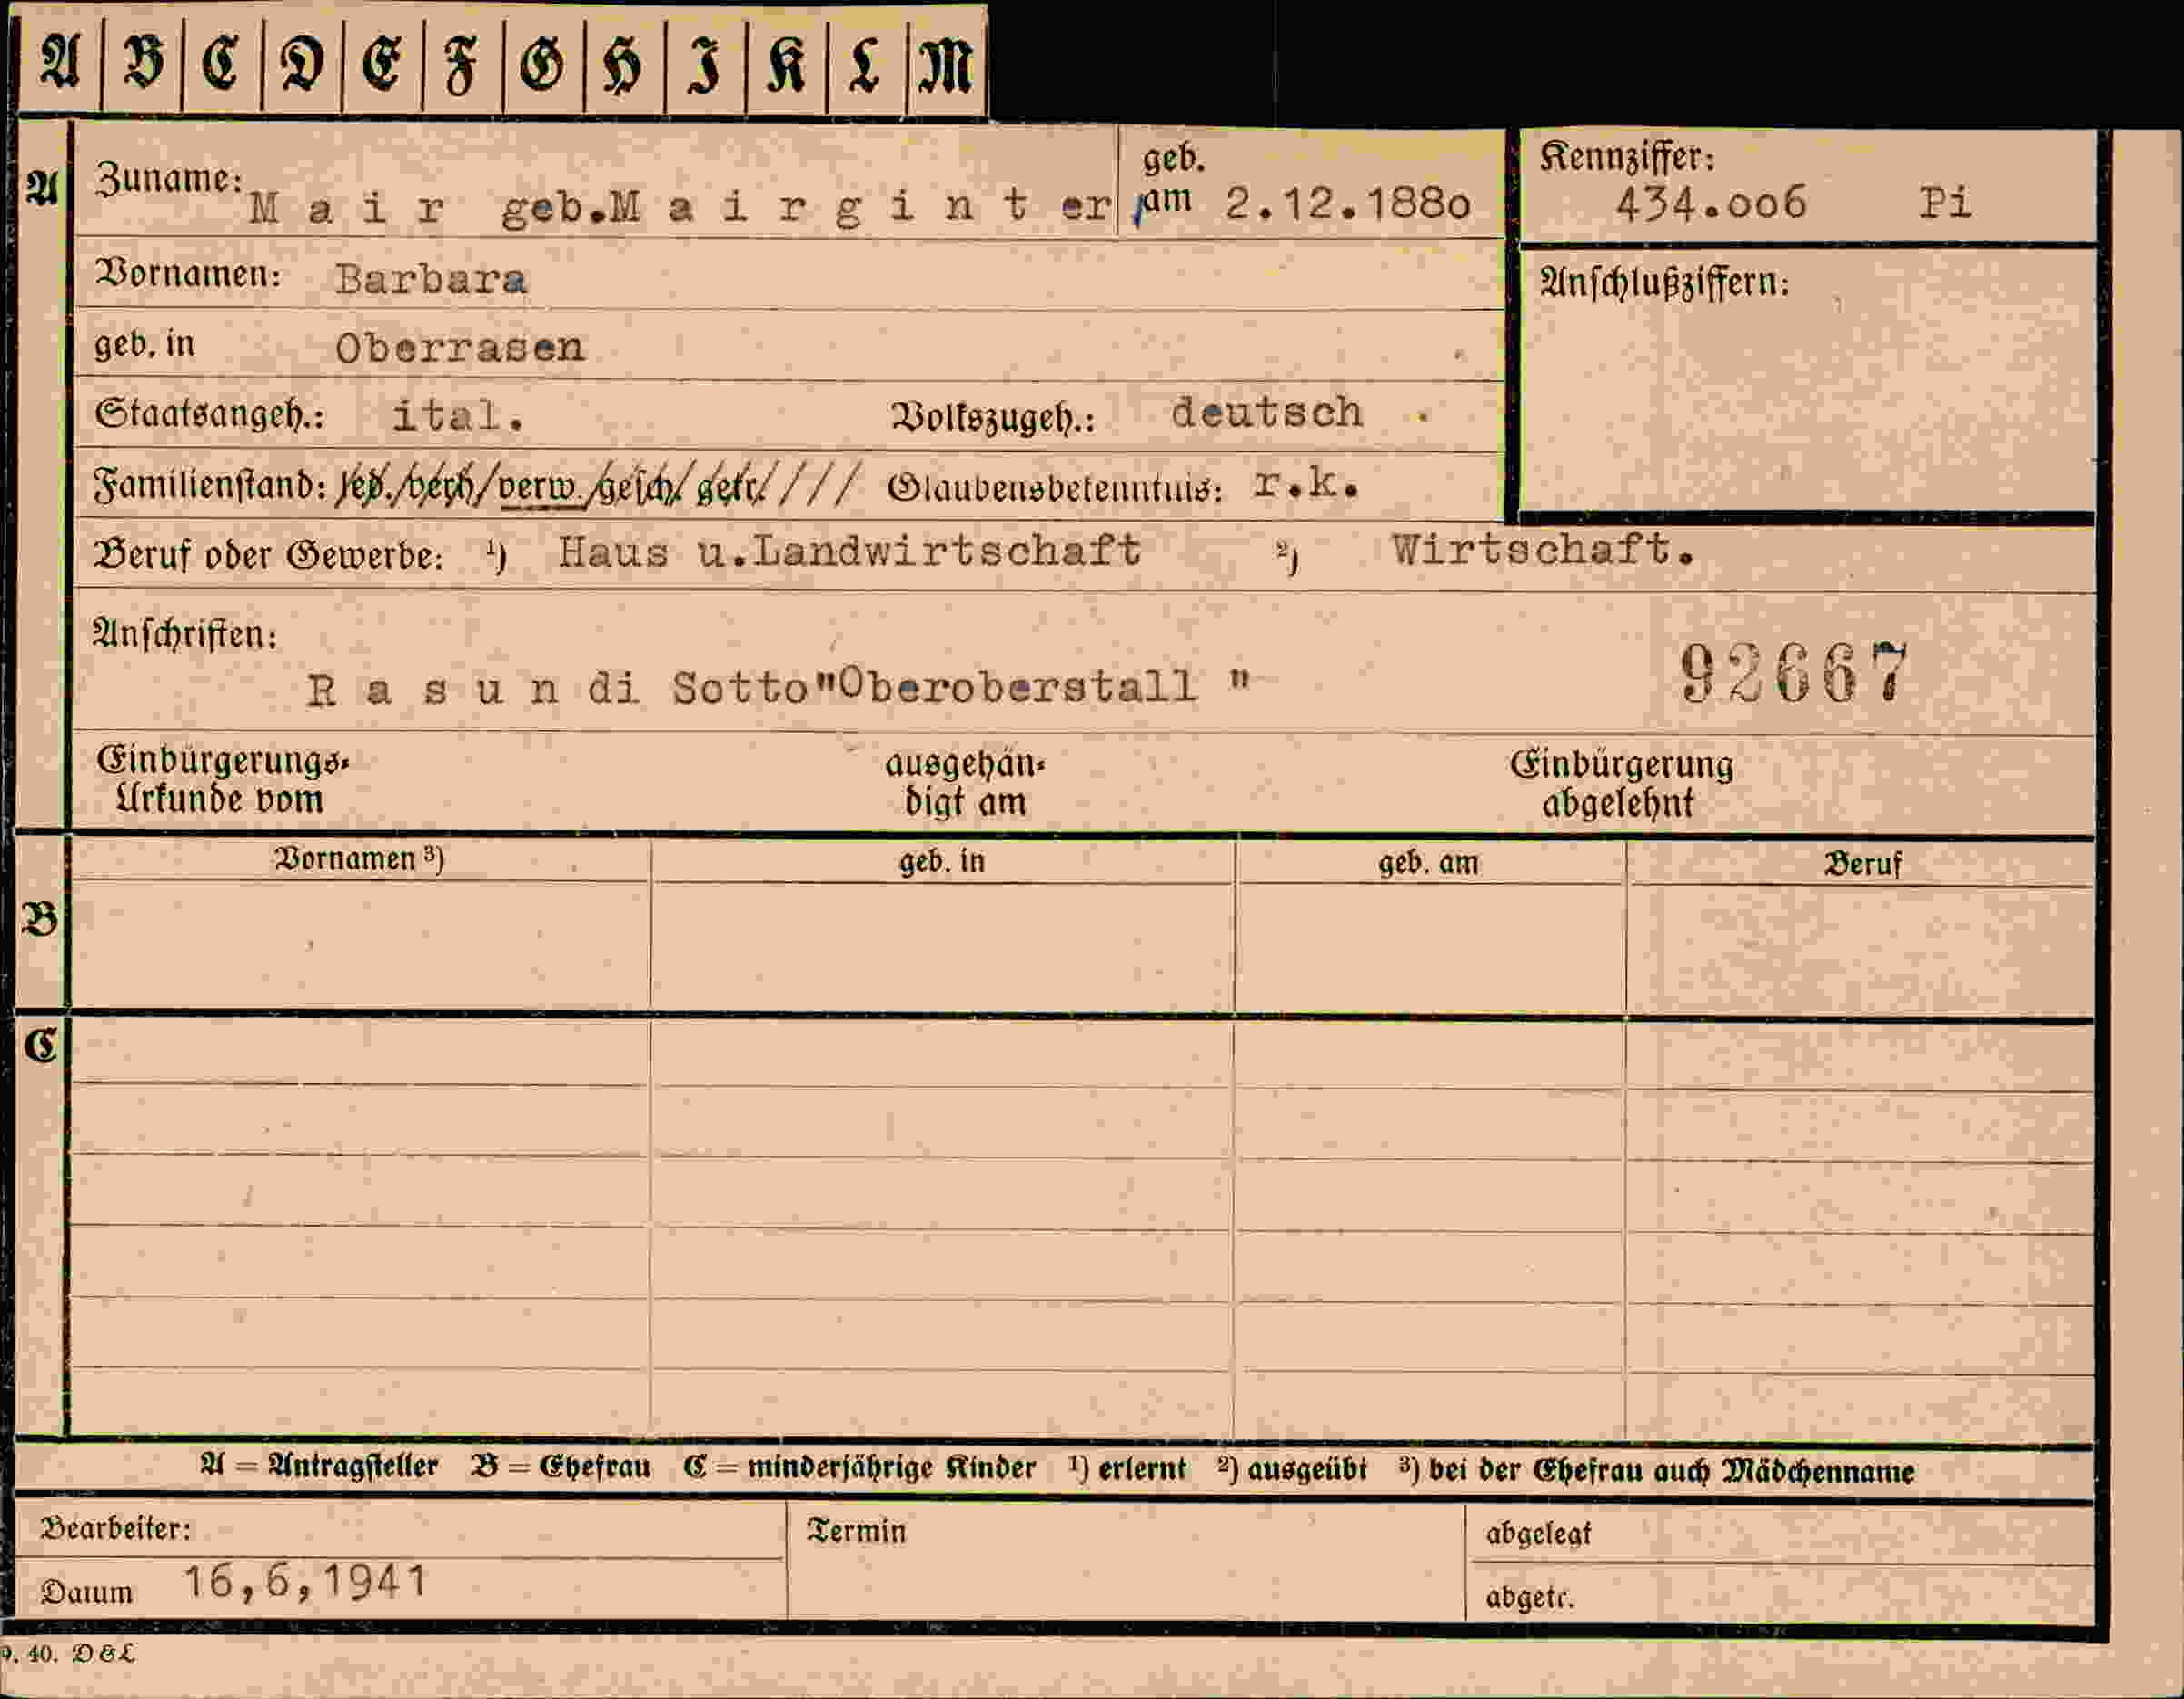 A B C D E F G H I K L M
A Zuname: Mair geb.Mairginter geb. am 2.12.188o Kennziffer: 434.oo6 Pi
Vornamen: Barbara Anschlußziffern:
geb. in Oberrasen
Staatsangeh.: ital. Volkszugeh.: deutsch
Familienstand: led./verh/verw./gesch/getr//// Glaubensbekenntnis: r.k.
Beruf oder Gewerbe: 1) Haus u.Landwirtschaft 2) Wirtschaft.
Anschriften:
Rasun di Sotto"Oberoberstall " 92667
Einbürgerungs- ausgehän- Einbürgerung
Urkunde vom digt am abgelehnt
Vornamen 3) geb. in geb. am Beruf
B
C
A = Antragsteller B = Ehefrau C = minderjährige Kinder 1) erlernt 2) ausgeübt 3) bei der Ehefrau auch Mädchenname
Bearbeiter: Termin abgelegt
Datum 16,6,1941 abgetr.
40. D&L